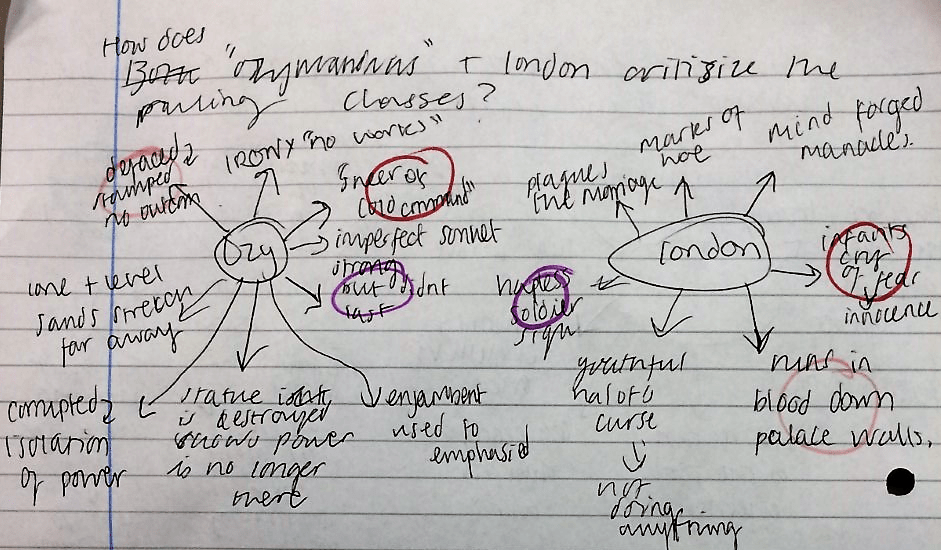 How does
Both "Ozymandias" + london critisize the
ruling classes?
defaced
stamped
no outcom
IRONY "no works"
sneer of
cold command"
imperfect sonnet
strong
but didnt
last
lone + level
sands stretch
far away
corrupted
isolation
of power
statue
is destroyed
shows power
is no longer
there
enjambent
used to
emphasid
Ozy
plagues
the marriage
marks of
woe
mind forged
manacles.
london
infants
cry
of fear
innocence
hapless
soldier
sigh
youthful
harlots
curse
not
doing
anything
runs in
blood down
palace walls.